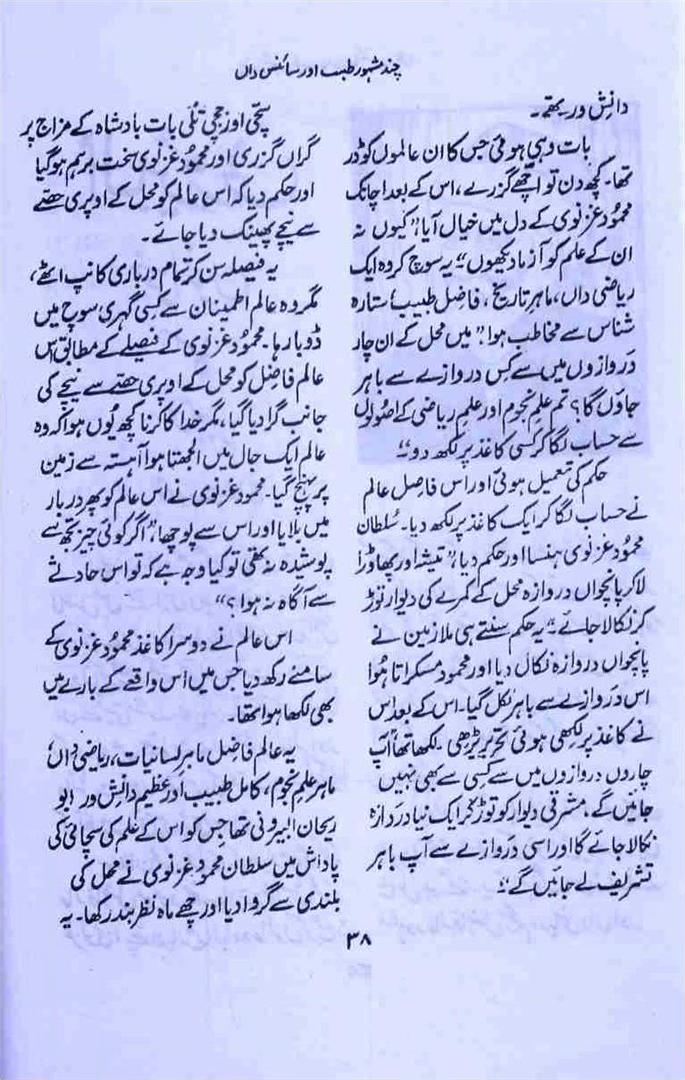 چند مشہور طبیب اور سائنس داں
دانِش ور تھے۔
بات وہی ہوئی جس کا ان عالموں کو ڈر
تھا۔ کچھ دن تو اچھے گزرے، اس کے بعد اچانک
محمود غزنوی کے دل میں خیال آیا "کیوں نہ
ان کے علم کو آزما دیکھوں" یہ سوچ کر وہ ایک
ریاضی داں، ماہر تاریخ، فاضل طبیب، ستارہ
شناس سے مخاطب ہوا "میں محل کے ان چار
دروازوں میں سے کِس دروازے سے باہر
جاؤں گا؟ تم علم نجوم اور علم ریاضی کے اصولوں
سے حساب لگا کر کسی کاغذ پر لکھ دو"
حکم کی تعمیل ہوئی اور اس فاضل عالم
نے حساب لگا کر ایک کاغذ پر لکھ دیا۔ سُلطان
محمود غزنوی ہنسا اور حکم دیا "تیشہ اور پھاوڑا
لا کر پانچواں دروازہ محل کے کمرے کی دیوار توڑ
کر نکالا جائے" یہ حکم سنتے ہی ملازمین نے
پانچواں دروازہ نکال دیا اور محمود مسکراتا ہُوا
اس دروازے سے باہر نکل گیا۔ اس کے بعد اس
نے کاغذ پر لکھی ہوئی تحریر پڑھی۔ لکھا تھا "آپ
چاروں دروازوں میں سے کسی سے بھی نہیں
جائیں گے، مشرقی دیوار کو توڑ کر ایک نیا دروازہ
نکالا جائے گا اور اسی دروازے سے آپ باہر
تشریف لے جائیں گے"
سچی اور جچی تُلی بات بادشاہ کے مزاج پر
گراں گزری اور محمُود غزنوی سخت برہم ہوگیا
اور حکم دیا کہ اس عالم کو محل کے اوپری حصّے
سے نیچے پھینک دیا جائے۔
یہ فیصلہ سن کر تمام درباری کانپ اٹھے،
مگر وہ عالم اطمینان سے کسی گہری سوچ میں
ڈوبا رہا۔ محمُود غزنوی کے فیصلے کے مطابق اس
عالم فاضل کو محل کے اوپری حصّے سے نیچے کی
جانب گرا دیا گیا، مگر خدا کا کرنا کچھ یُوں ہوا کہ وہ
عالم ایک جال میں الجھتا ہوا آہستہ سے زمین
پر پہنچ گیا۔ محمود غزنوی نے اس عالم کو پھر دربار
میں بلایا اور اس سے پوچھا، "اگر کوئی چیز تجھ سے
پوشیدہ نہ تھی تو کیا وجہ ہے کہ تو اس حادثے
سے آگاہ نہ ہوا؟"
اس عالم نے دوسرا کاغذ محمُود غزنوی کے
سامنے رکھ دیا جس میں اس واقعے کے بارے میں
بھی لکھا ہوا تھا۔
یہ عالم فاضل ماہر لسانیات، ریاضی داں،
ماہر علم نجوم، کامل طبیب اور عظیم دانِش ور ابو
ریحان البیرونی تھا جس کو اس کے علم کی سچائی کی
پاداش میں سلطان محمُود غزنوی نے محل کی
بلندی سے گروا دیا اور چھے ماہ نظر بند رکھا۔ یہ
۳۸